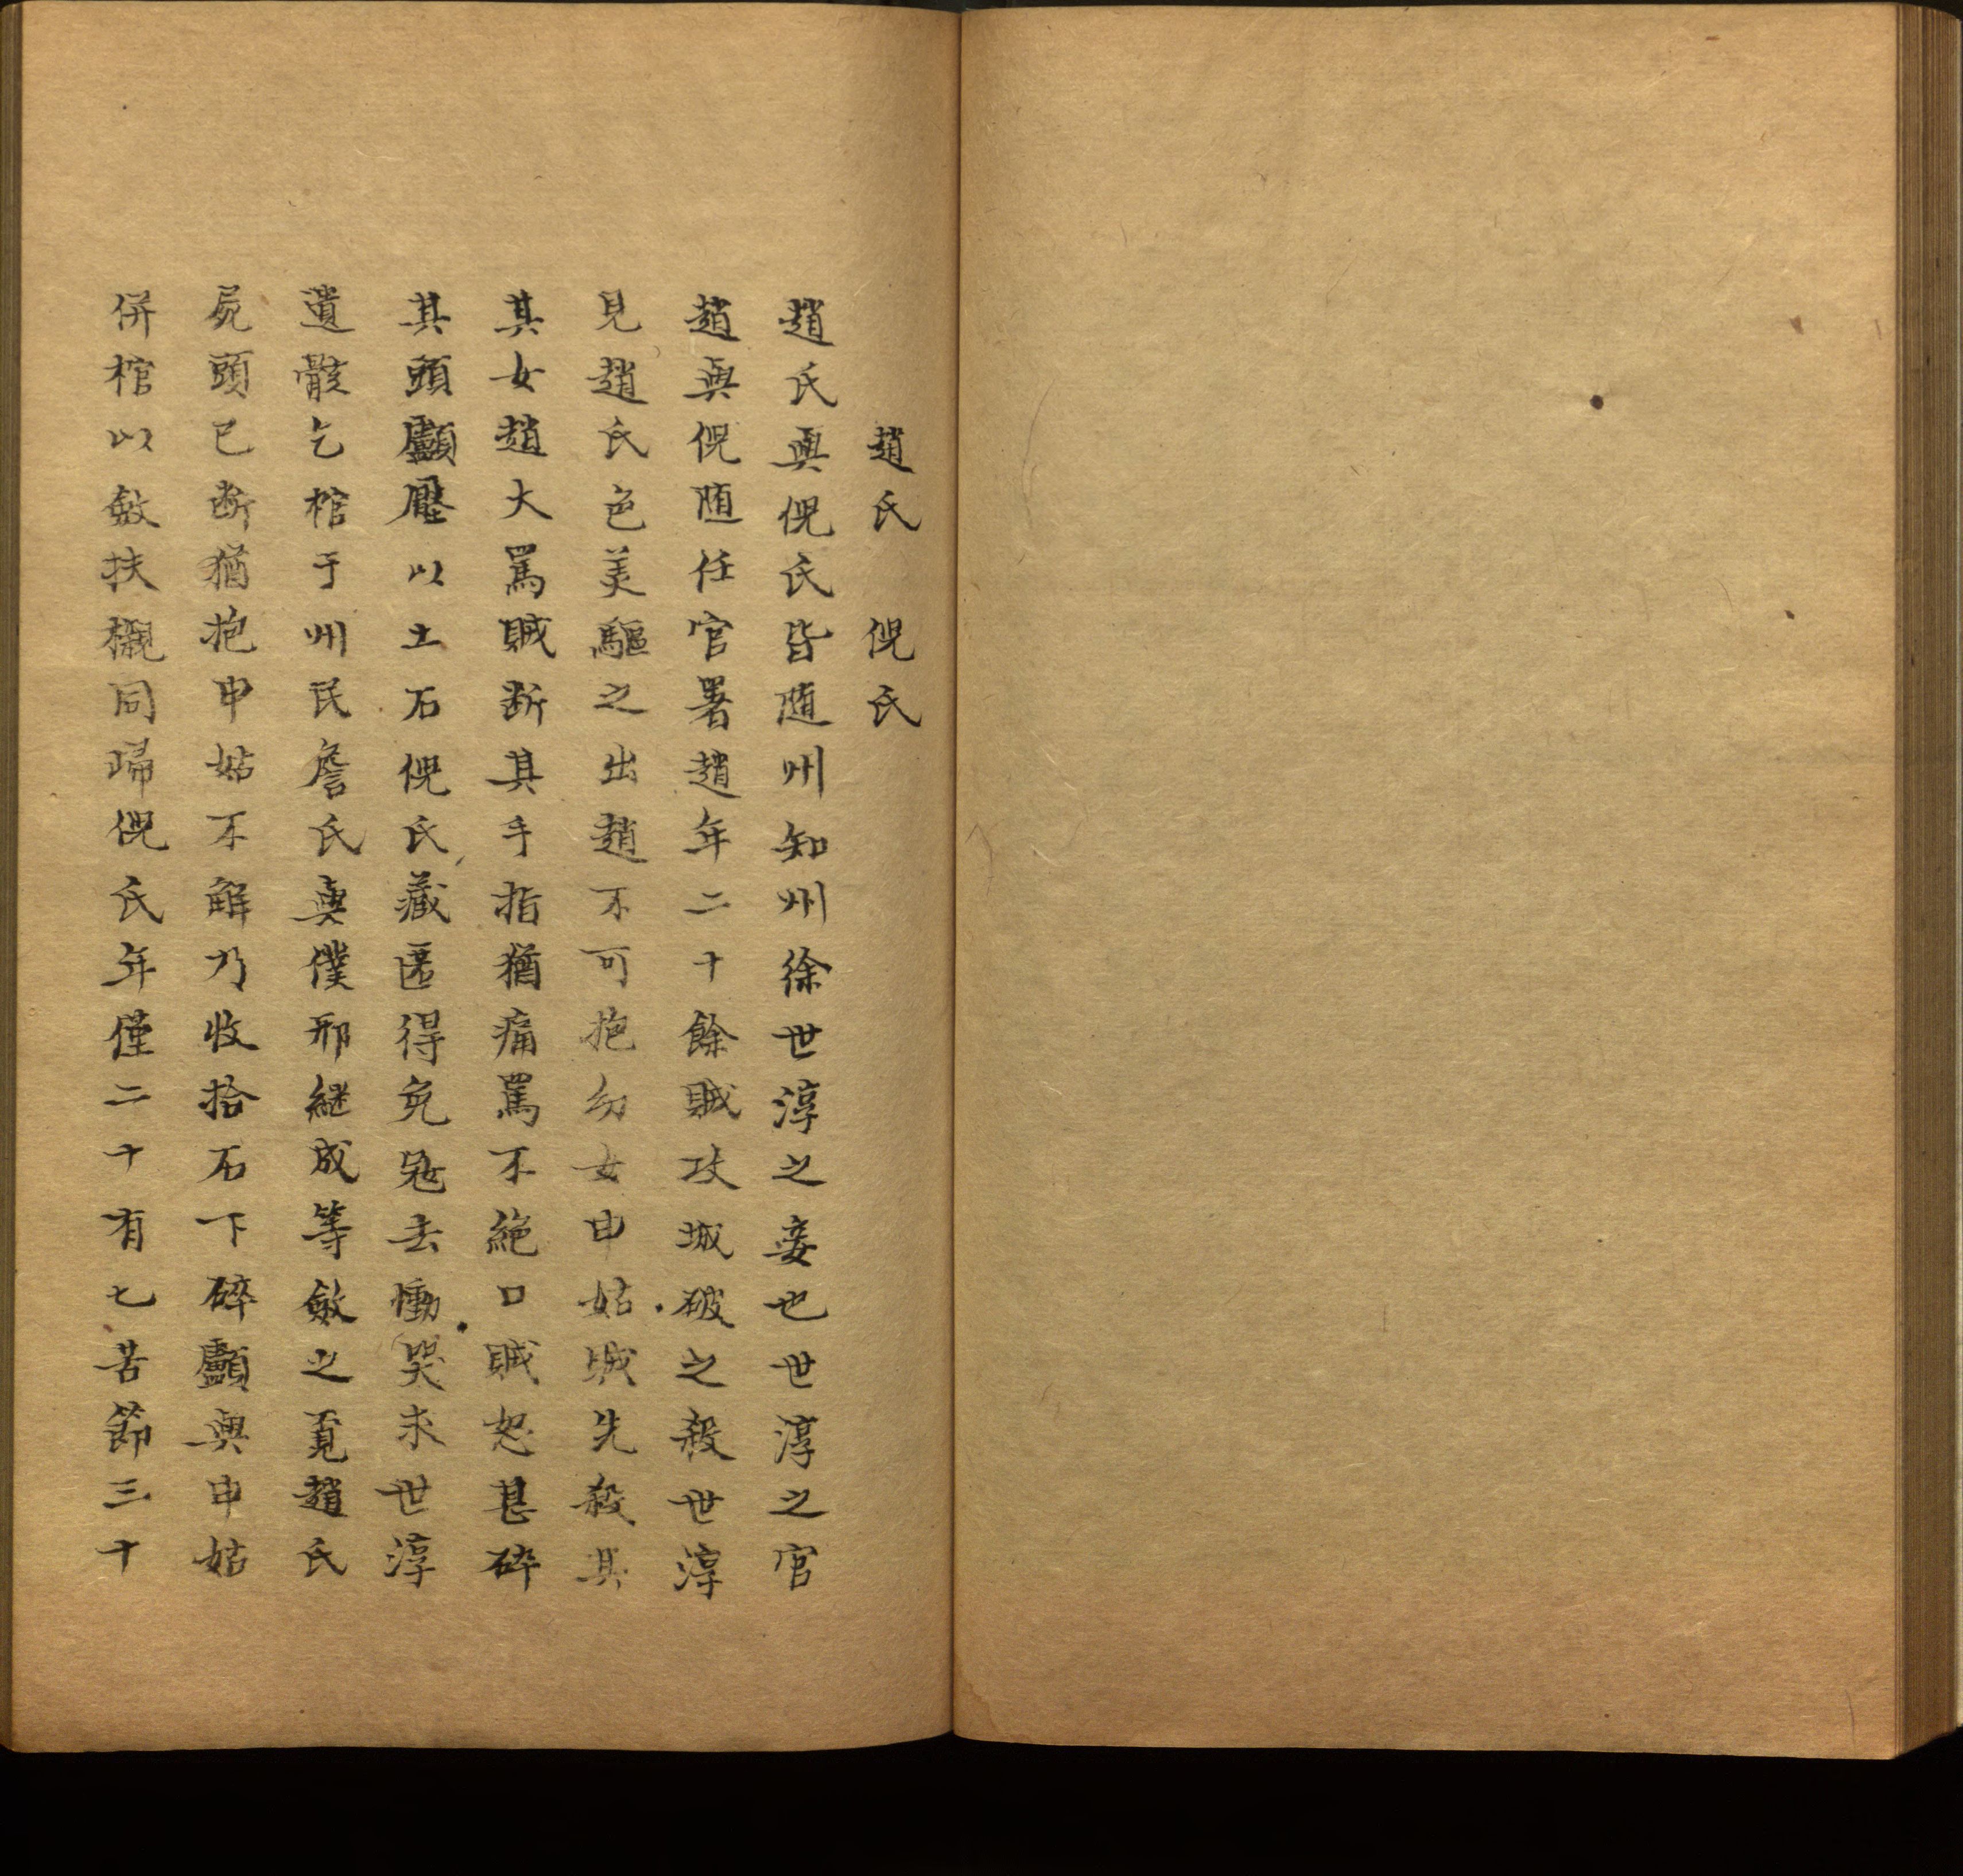 趙氏 倪氏
趙氏與倪氏皆随州知州徐世淳之妾也世淳之官
趙與倪随任官署趙年二十餘賊攻城破之殺世淳
見趙氏色美驅之出趙不可抱幼女申姑城先殺其
其女趙大罵賊断其手指猶痛罵不絕口賊怒甚碎
其頭顱壓以土石倪氏藏匿得免寇去慟哭求世淳
遺骸乞棺于州民詹氏與僕邢継成等斂之覓趙氏
屍頭已断猶抱申姑不解乃收拾石下碎顱與申姑
併棺以斂扶櫬同歸倪氏年僅二十有七苦節三十